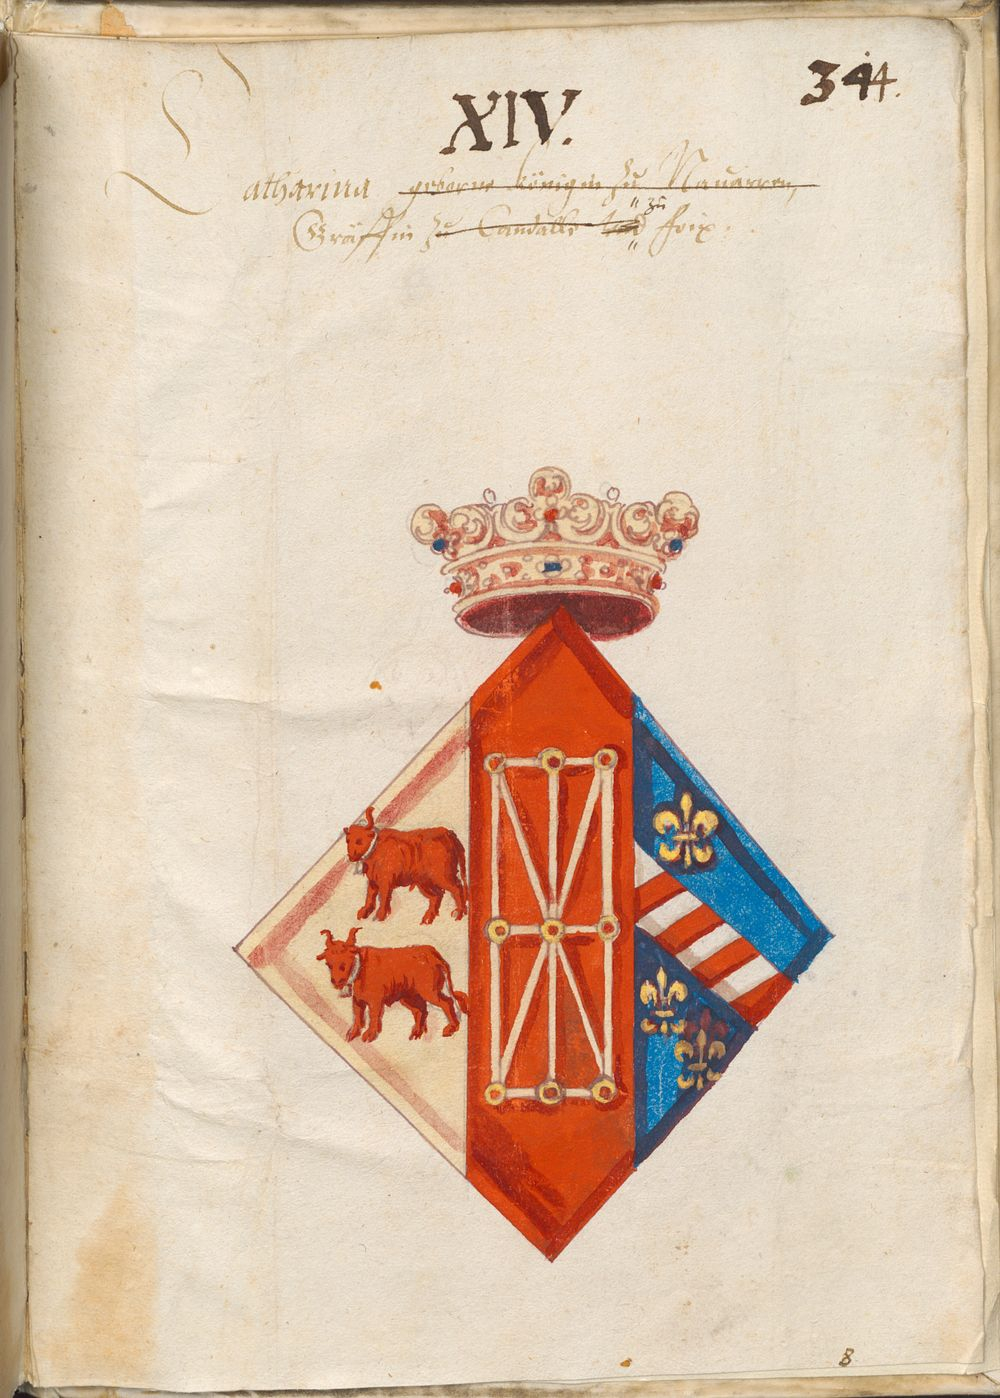 344.
XIV.
Catharina geborne königin zu Nauarren,
Gräffin zu Candalle vnd zu Foix.
8